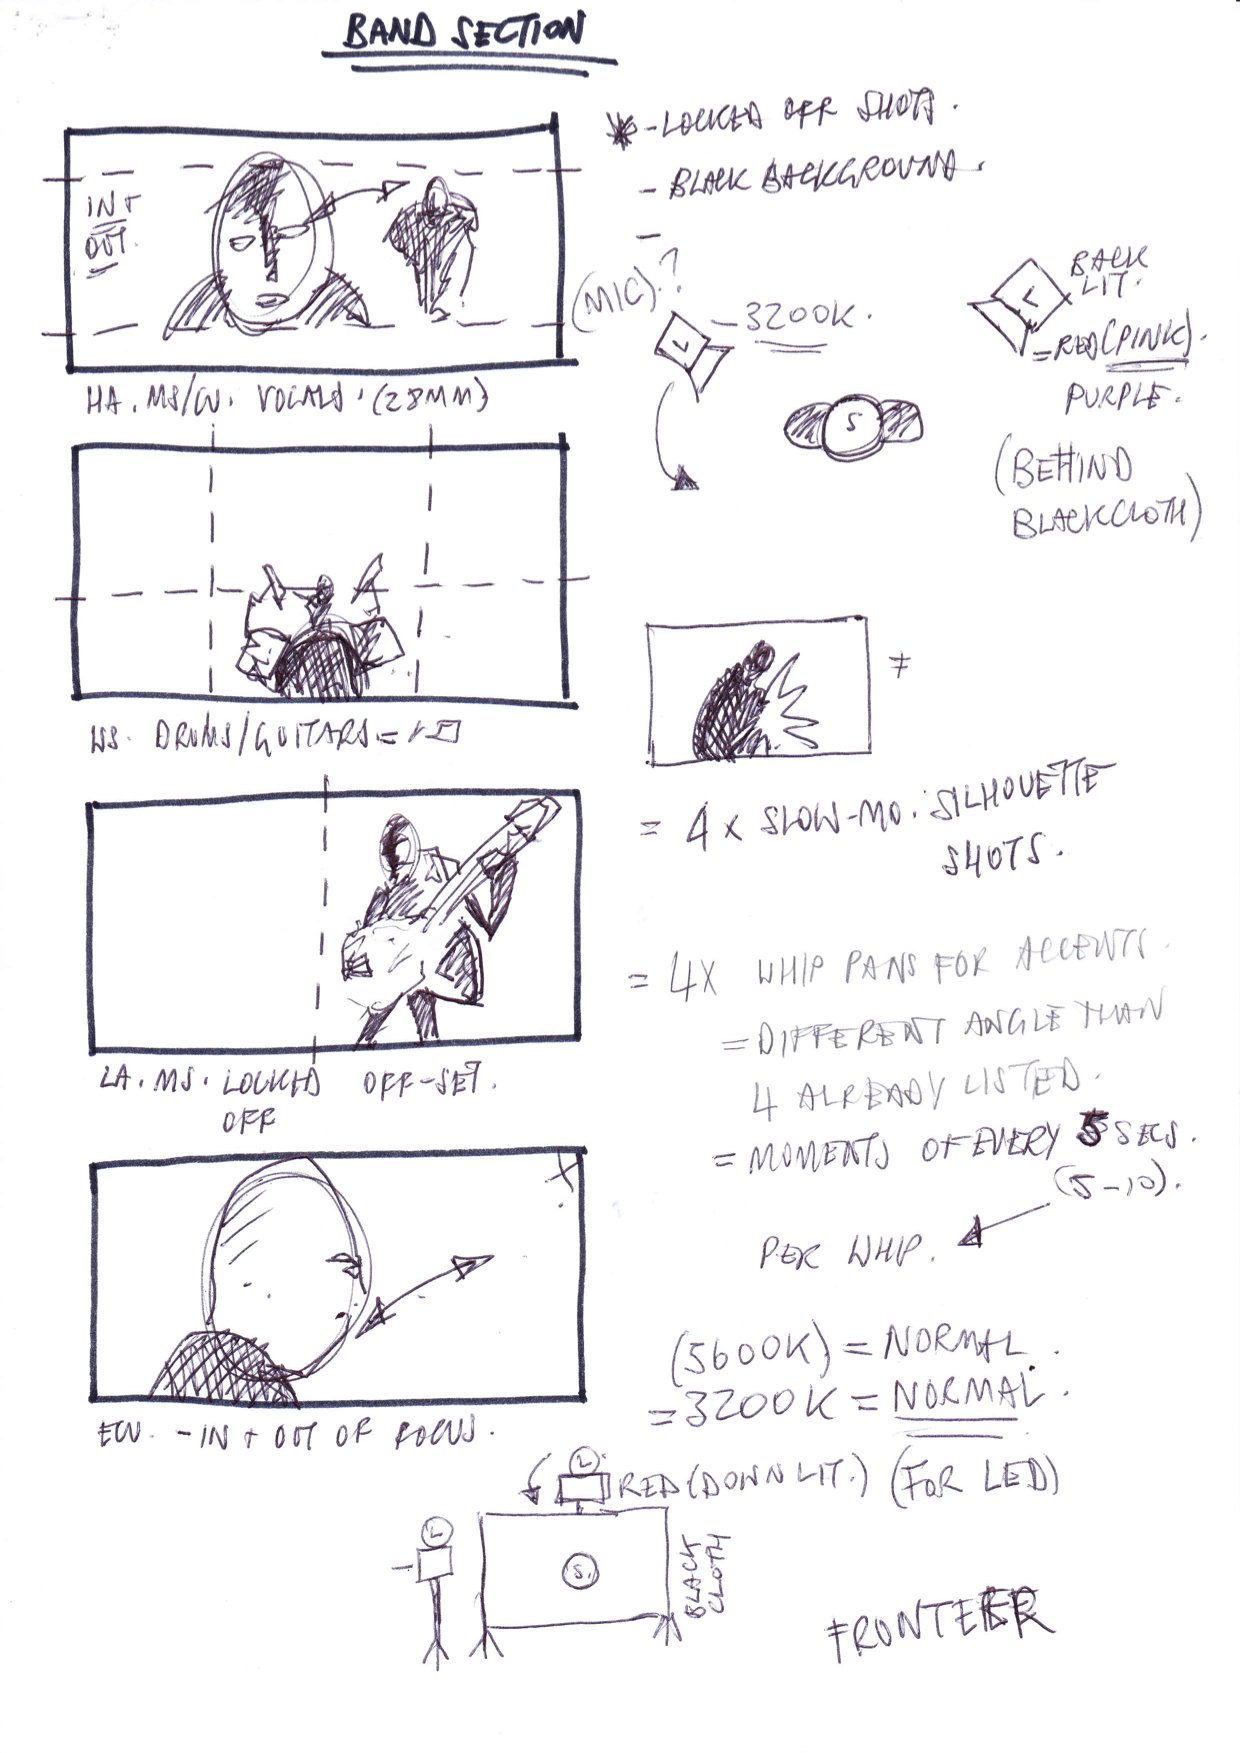 BAND SECTION
* - LOCKED OFF SHOTS.
- BLACK BACKGROUND.
-
IN +
OUT.
(MIC)?
L
- 3200K.
L
BACK
LIT.
= RED (PINK).
PURPLE.
S
(BEHIND
BLACK CLOTH)
HA. MS/CU. VOCALS. (28MM)
WS. DRUMS/GUITARS =
≠
= 4 x SLOW-MO. SILHOUETTE
SHOTS.
LA. MS. LOCKED OFF-SET.
OFF
= 4X WHIP PANS FOR ACCENTS.
= DIFFERENT ANGLE THAN
4 ALREADY LISTED.
= MOMENTS OF EVERY 5 SECS.
(5-10).
PER WHIP.
ECU. - IN + OUT OF FOCUS.
(5600K) = NORMAL.
= 3200K = NORMAL.
L
RED (DOWN LIT.) (FOR LED)
L
S.
BLACK
CLOTH
FRONTEER